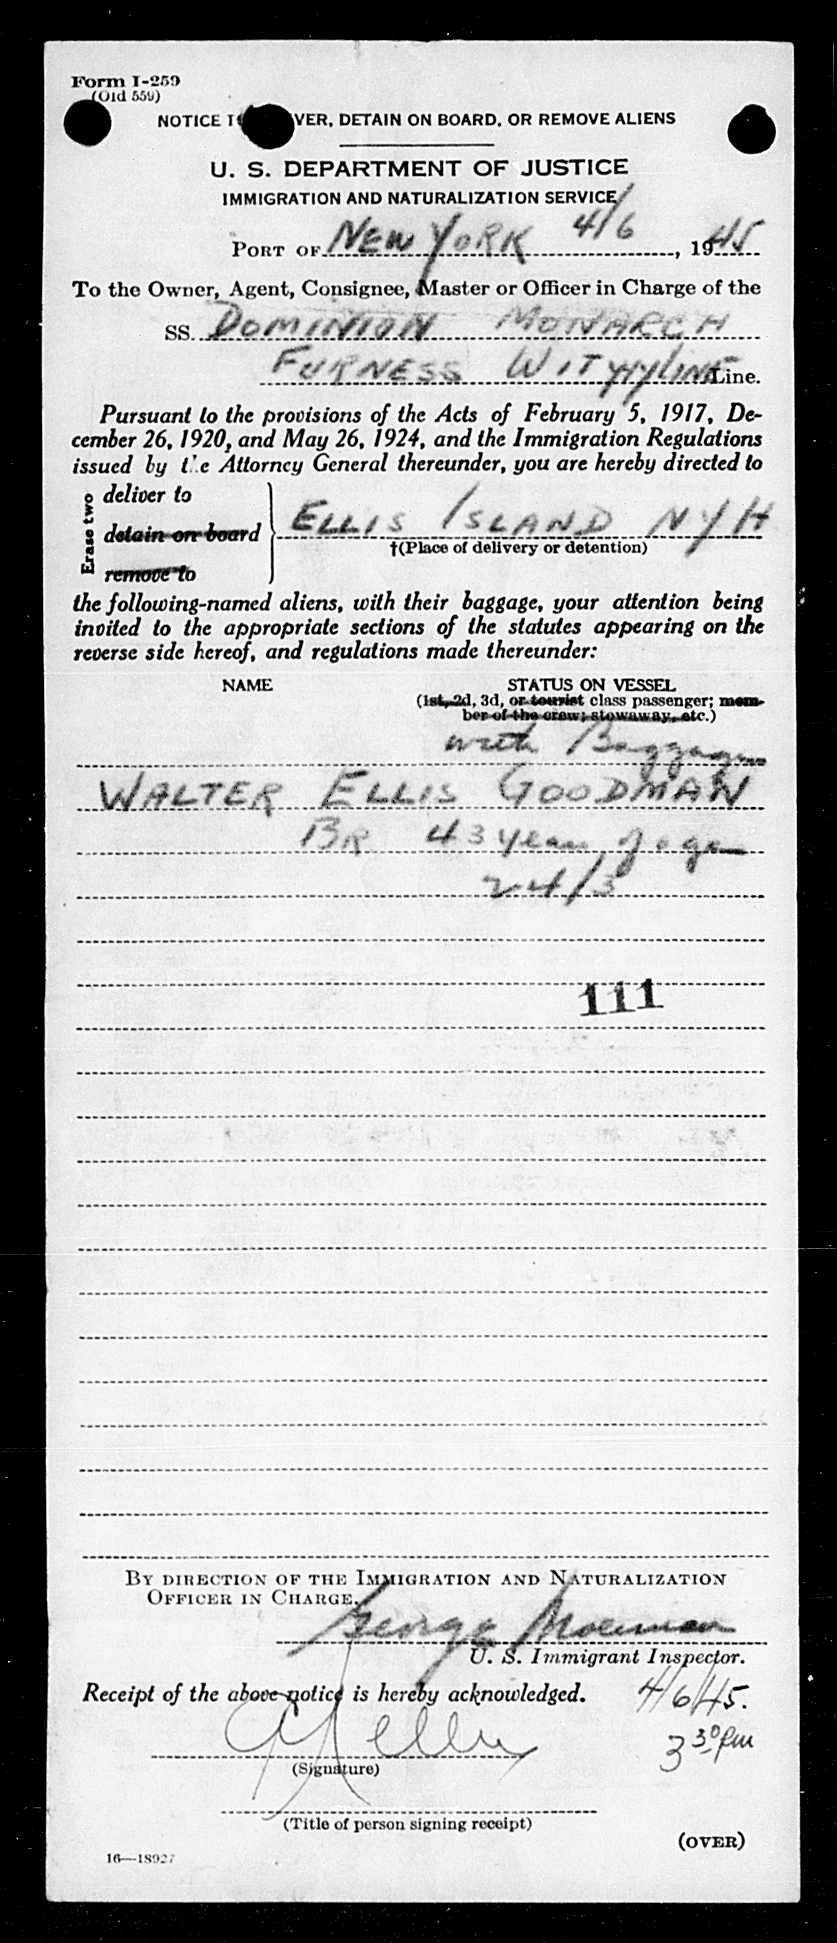 Form I-259
(Old 559)
NOTICE TO DELIVER, DETAIN ON BOARD, OR REMOVE ALIENS
U. S. DEPARTMENT OF JUSTICE
IMMIGRATION AND NATURALIZATION SERVICE
PORT OF NEW YORK 4/6, 1945
To the Owner, Agent, Consignee, Master or Officer in Charge of the
SS. DOMINION MONARCH
FURNESS WITHYLINE Line.
Pursuant to the provisions of the Acts of February 5, 1917, De-
cember 26, 1920, and May 26, 1924, and the Immigration Regulations
issued by the Attorney General thereunder, you are hereby directed to
Erase two
deliver to
detain on board
remove to
ELLIS ISLAND NYH
†(Place of delivery or detention)
the following-named aliens, with their baggage, your attention being
invited to the appropriate sections of the statutes appearing on the
reverse side hereof, and regulations made thereunder:
NAME STATUS ON VESSEL
(1st, 2d, 3d, or tourist class passenger; mem-
ber of the crew; stowaway, etc.)
with Baggage
WALTER ELLIS GOODMAN
BR 43 years of age
24/3
111
BY DIRECTION OF THE IMMIGRATION AND NATURALIZATION
OFFICER IN CHARGE.
George
U. S. Immigrant Inspector.
Receipt of the above notice is hereby acknowledged. 4/6/45.
3 30 pm
(Signature)
(Title of person signing receipt)
(OVER)
16—18927